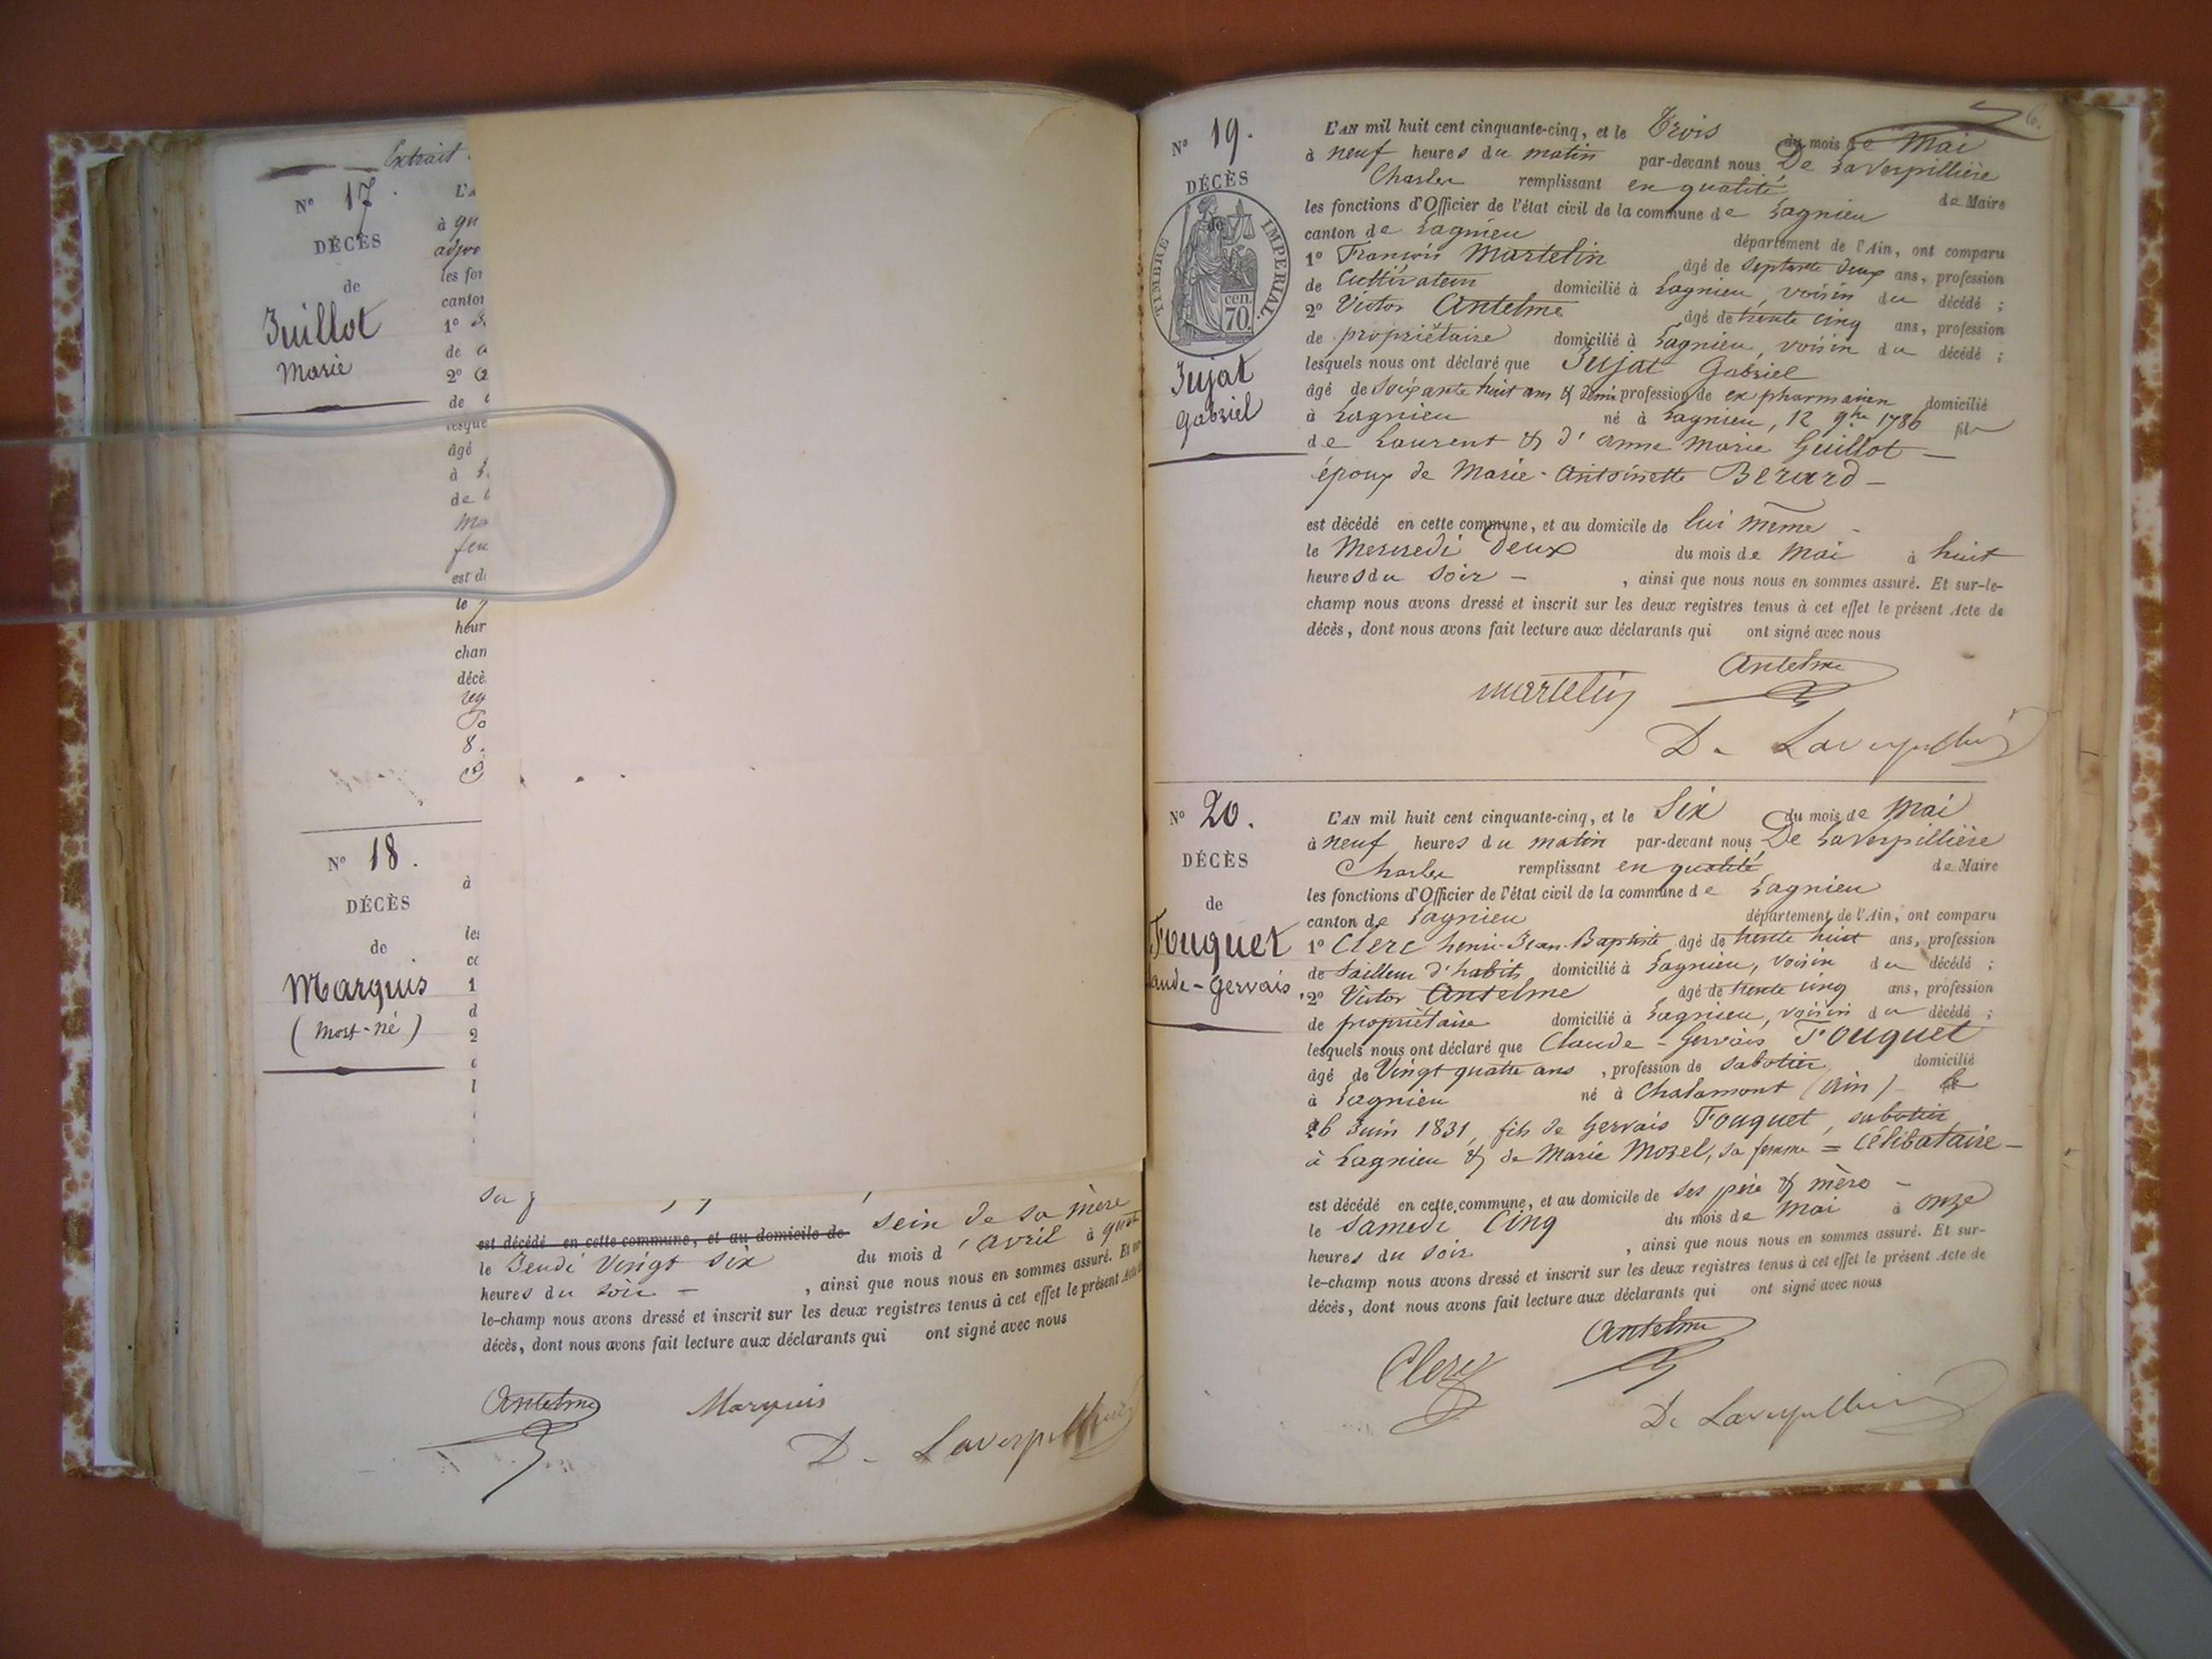 Extrait
N° 17.
DÉCÈS
de
Juillot
Marie
L'A
à qu
adjoi
les fon
canton
1°
de
2°
de
lesque
âgé
à
de
Ma
feu
est dé
le
heur
chan
décè
To
8.
N° 18.
DÉCÈS
de
Marquis
(Mort-né)
à
les
1
d
2
sein de sa mère
est décédé en cette commune, et au domicile de
le Jeudi Vingt Six du mois d'avril à
heures du soir - , ainsi que nous nous en sommes assuré. Et
le-champ nous avons dressé et inscrit sur les deux registres tenus à cet effet le présent Acte
décès, dont nous avons fait lecture aux déclarants qui ont signé avec nous
Antelme Marquis
De Laverpillière
6.
N° 19.
DÉCÈS
de
TIMBRE IMPERIAL.
cen.
70.
Jujat
Gabriel
L'AN mil huit cent cinquante-cinq, et le Trois du mois de Mai
à neuf heures du matin par-devant nous De LaVerpillière
Charles remplissant en qualité de Maire
les fonctions d'Officier de l'état civil de la commune de Lagnieu
canton de Lagnieu département de l'Ain, ont comparu
1° François Martelin âgé de septante deux ans, profession
de Cultivateur domicilié à Lagnieu, voisin du décédé ;
2° Victor Antelme âgé de trente cinq ans, profession
de propriétaire domicilié à Lagnieu, voisin du décédé ;
lesquels nous ont déclaré que Jujat Gabriel
âgé de soixante huit ans & demi profession de ex pharmacien domicilié
à Lagnieu né à Lagnieu, 12 9bre 1786 fils
de Laurent & d'anne Marie Guillot -
époux de Marie-Antoinette Berard -
est décédé en cette commune, et au domicile de lui même -
le Mercredi Deux du mois de Mai à huit
heures du soir - , ainsi que nous nous en sommes assuré. Et sur-le-
champ nous avons dressé et inscrit sur les deux registres tenus à cet effet le présent Acte de
décès, dont nous avons fait lecture aux déclarants qui ont signé avec nous
Antelme
martelin
De Laverpillière
N° 20.
DÉCÈS
de
Fouquet
laude-Gervais.
L'AN mil huit cent cinquante-cinq, et le Six du mois de Mai
à neuf heures du matin par-devant nous De LaVerpillière
Charles remplissant en qualité de Maire
les fonctions d'Officier de l'état civil de la commune de Lagnieu
canton de Lagnieu département de l'Ain, ont comparu
1° Clerc henri-Jean-Baptiste âgé de trente huit ans, profession
de tailleur d'habits domicilié à Lagnieu, voisin du décédé ;
2° Victor Antelme âgé de trente cinq ans, profession
de propriétaire domicilié à Lagnieu, voisin du décédé ;
lesquels nous ont déclaré que Claude-Gervais Fouquet
âgé de Vingt quatre ans , profession de sabotier domicilié
à Lagnieu né à Chalamont (Ain) - le
26 Juin 1831, fils de Gervais Fouquet, sabotier
à Lagnieu & de Marie Morel, sa femme = Célibataire -
est décédé en cette commune, et au domicile de ses père & mère -
le Samedi Cinq du mois de Mai à onze
heures du soir , ainsi que nous nous en sommes assuré. Et sur-
le-champ nous avons dressé et inscrit sur les deux registres tenus à cet effet le présent Acte de
décès, dont nous avons fait lecture aux déclarants qui ont signé avec nous
Antelme
Clerc
De Laverpillière